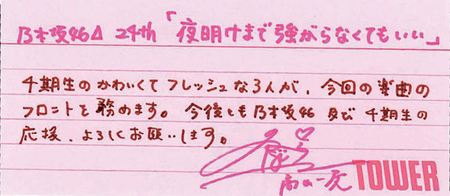 乃木坂46Δ 24th「夜明けまで強がらなくてもいい」
4期生のかわいくてフレッシュな3人が、今回の楽曲の
フロントを務めます。今後とも乃木坂46 及び 4期生の
応援、よろしくお願いします。
高山一実
TOWER